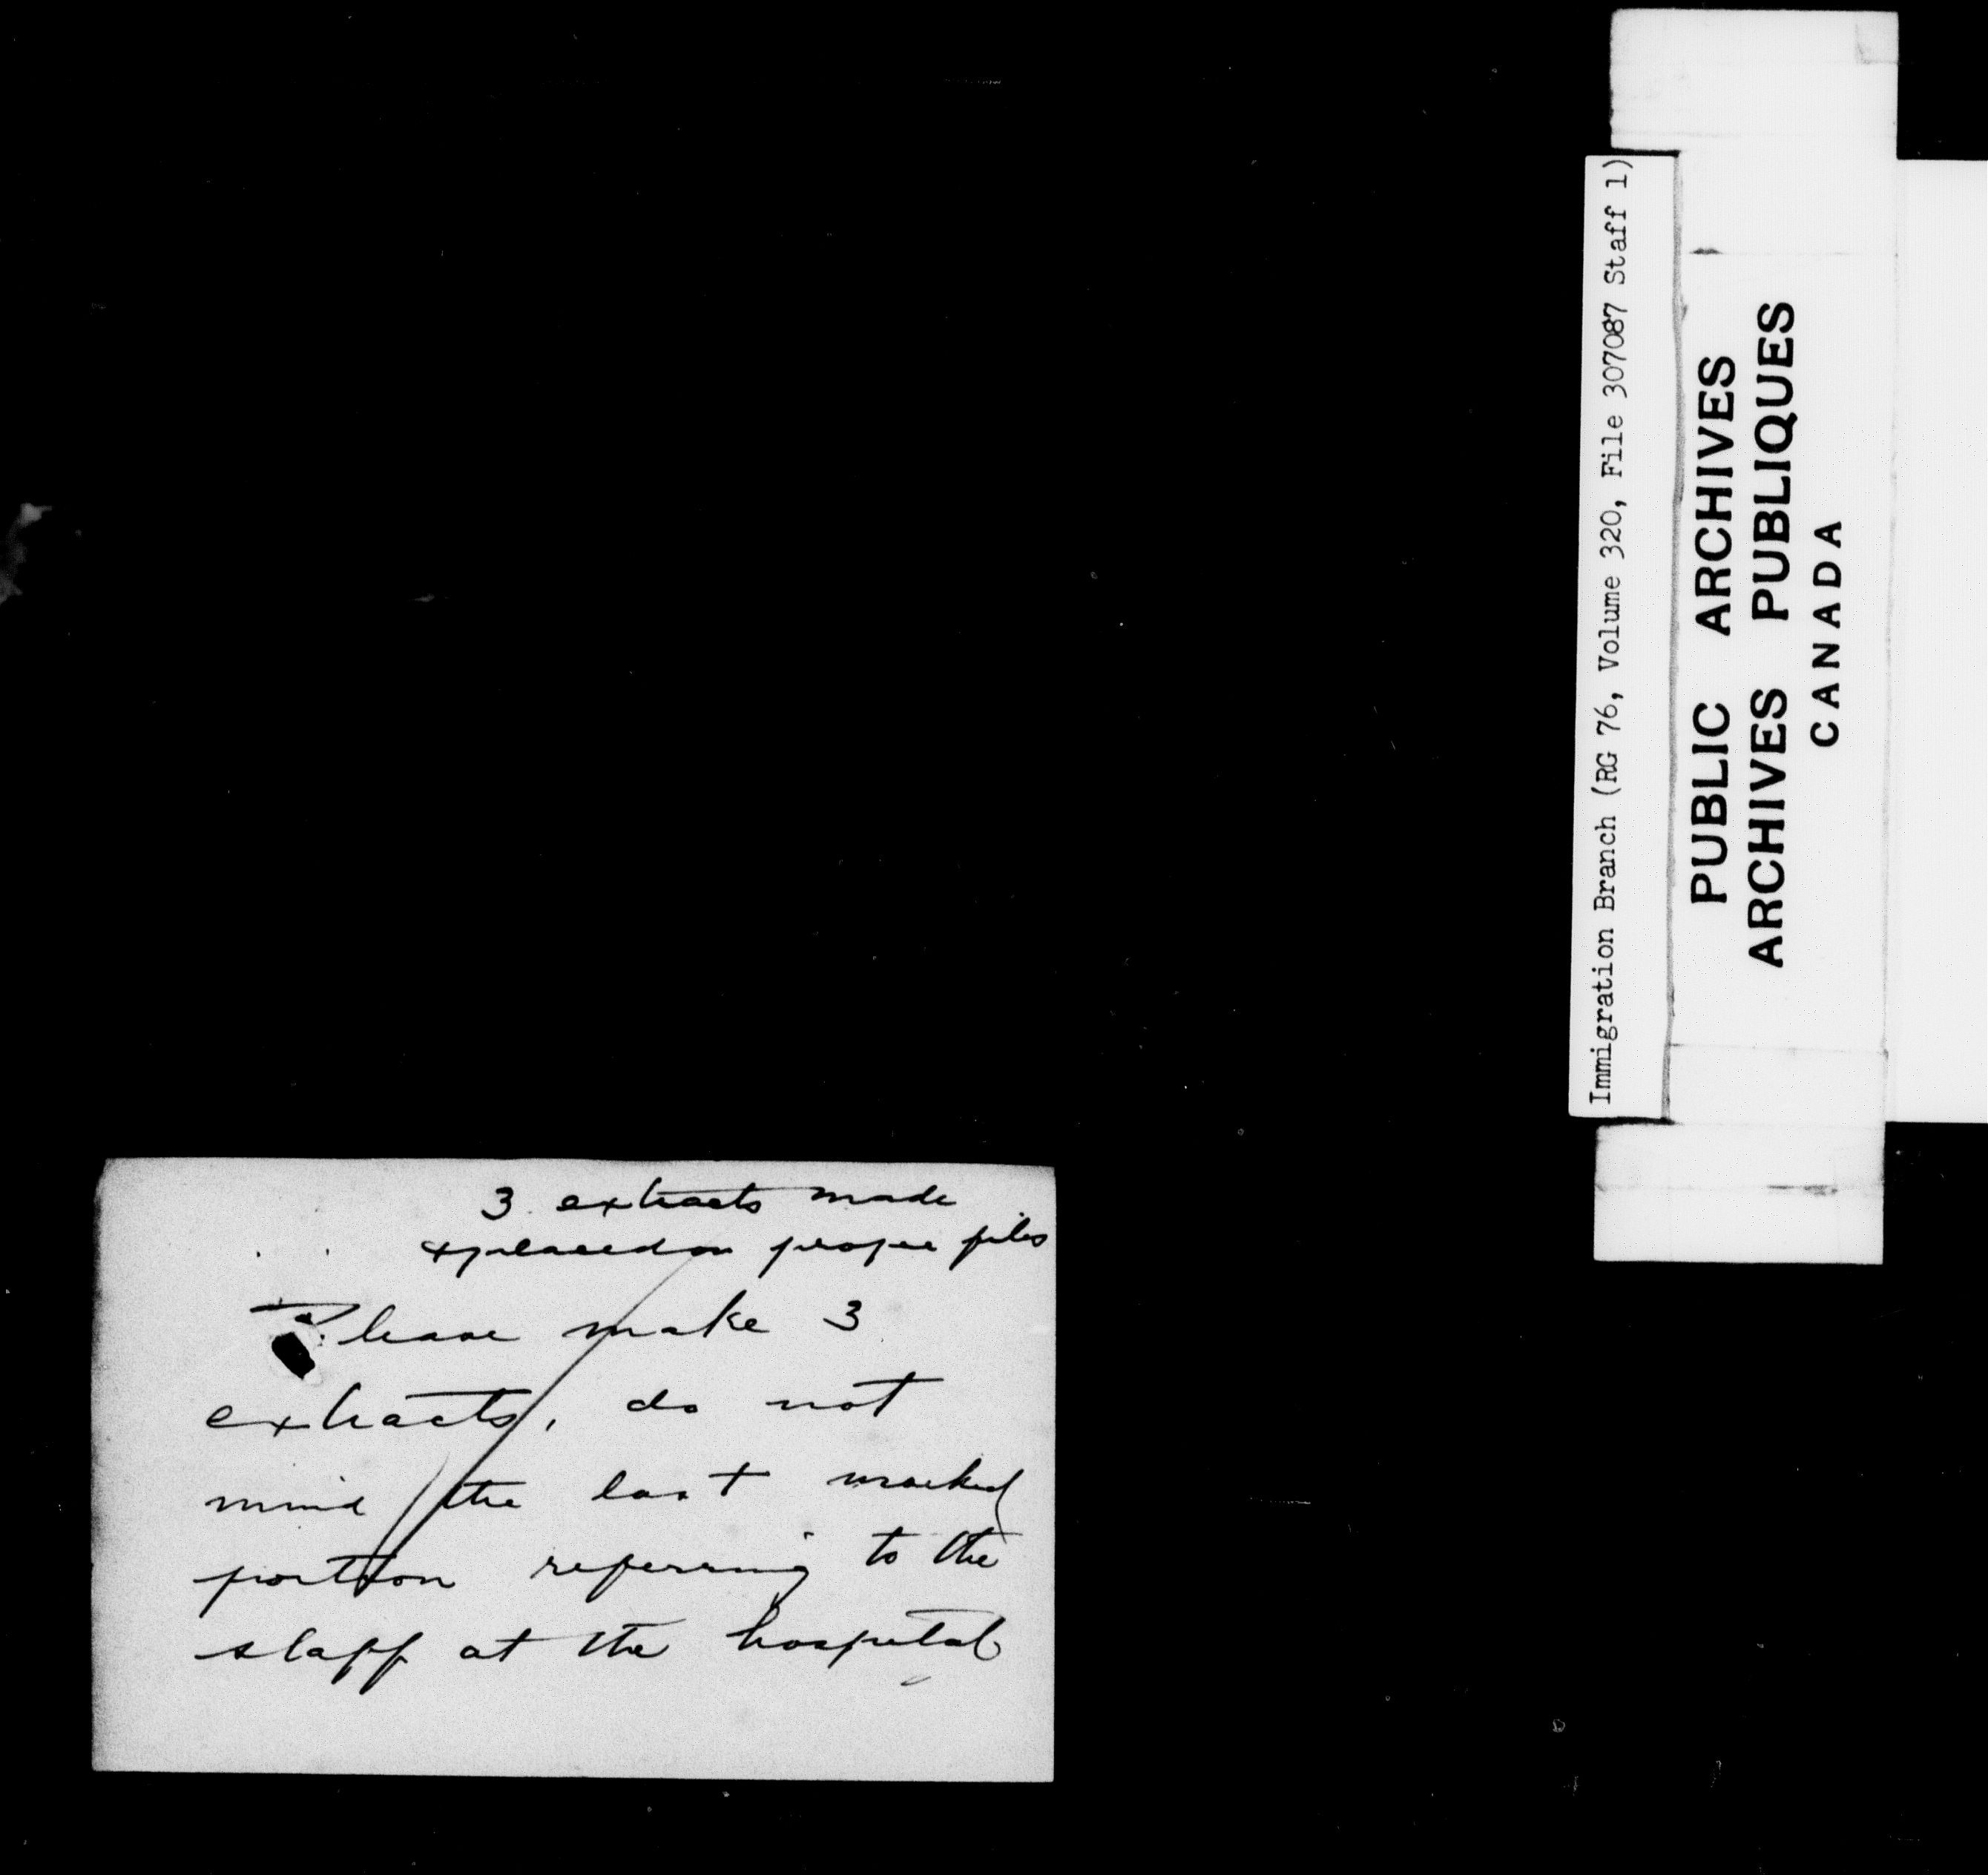 3 extracts made
& placed on proper files
Please make 3
extracts, do not
mind the last marked
portion referring to the
staff at the hospital
Immigration Branch (RG 76, Volume 320, File 307087 Staff 1)
PUBLIC ARCHIVES
ARCHIVES PUBLIQUES
CANADA